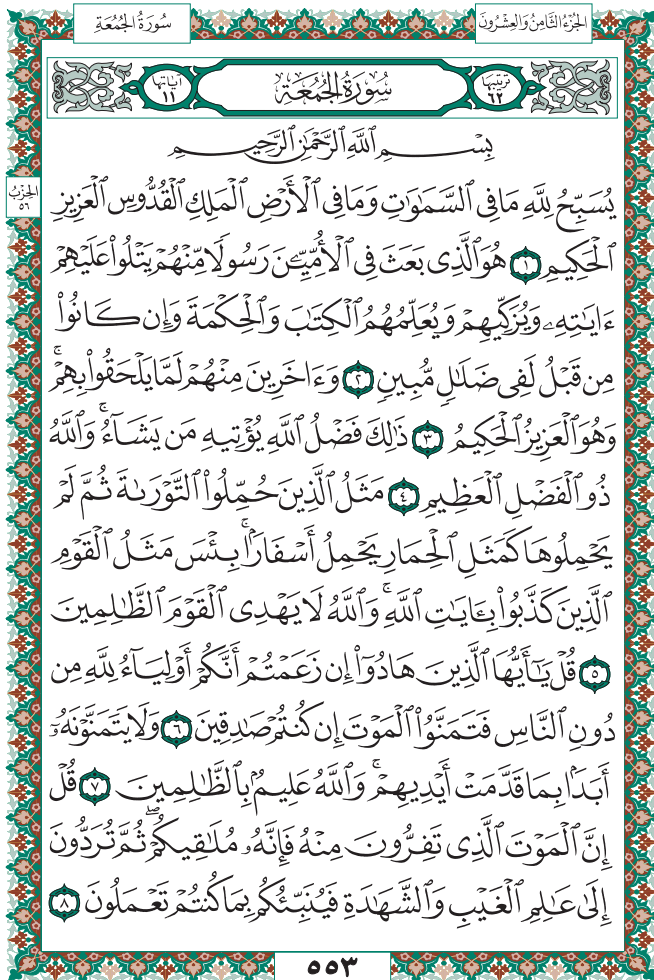 سُورَةُ الجُمُعَةِ
الجُزْءُ الثَّامِنُ وَالعِشْرُونَ
تَرتيبُها ٦٢
سُورَةُ الجُمُعَةِ
آيَاتُها ١١
الحِزْبُ ٥٦
بِسْمِ ٱللَّهِ ٱلرَّحْمَٰنِ ٱلرَّحِيمِ
يُسَبِّحُ لِلَّهِ مَا فِى ٱلسَّمَٰوَٰتِ وَمَا فِى ٱلْأَرْضِ ٱلْمَلِكِ ٱلْقُدُّوسِ ٱلْعَزِيزِ
ٱلْحَكِيمِ ١ هُوَ ٱلَّذِى بَعَثَ فِى ٱلْأُمِّيِّـۧنَ رَسُولًا مِّنْهُمْ يَتْلُوا۟ عَلَيْهِمْ
ءَايَٰتِهِۦ وَيُزَكِّيهِمْ وَيُعَلِّمُهُمُ ٱلْكِتَٰبَ وَٱلْحِكْمَةَ وَإِن كَانُوا۟
مِن قَبْلُ لَفِى ضَلَٰلٍ مُّبِينٍ ٢ وَءَاخَرِينَ مِنْهُمْ لَمَّا يَلْحَقُوا۟ بِهِمْ ۚ
وَهُوَ ٱلْعَزِيزُ ٱلْحَكِيمُ ٣ ذَٰلِكَ فَضْلُ ٱللَّهِ يُؤْتِيهِ مَن يَشَآءُ ۚ وَٱللَّهُ
ذُو ٱلْفَضْلِ ٱلْعَظِيمِ ٤ مَثَلُ ٱلَّذِينَ حُمِّلُوا۟ ٱلتَّوْرَىٰةَ ثُمَّ لَمْ
يَحْمِلُوهَا كَمَثَلِ ٱلْحِمَارِ يَحْمِلُ أَسْفَارًۢا ۚ بِئْسَ مَثَلُ ٱلْقَوْمِ
ٱلَّذِينَ كَذَّبُوا۟ بِـَٔايَٰتِ ٱللَّهِ ۚ وَٱللَّهُ لَا يَهْدِى ٱلْقَوْمَ ٱلظَّٰلِمِينَ
٥ قُلْ يَٰٓأَيُّهَا ٱلَّذِينَ هَادُوٓا۟ إِن زَعَمْتُمْ أَنَّكُمْ أَوْلِيَآءُ لِلَّهِ مِن
دُونِ ٱلنَّاسِ فَتَمَنَّوُا۟ ٱلْمَوْتَ إِن كُنتُمْ صَٰدِقِينَ ٦ وَلَا يَتَمَنَّوْنَهُۥٓ
أَبَدًۢا بِمَا قَدَّمَتْ أَيْدِيهِمْ ۚ وَٱللَّهُ عَلِيمٌۢ بِٱلظَّٰلِمِينَ ٧ قُلْ
إِنَّ ٱلْمَوْتَ ٱلَّذِى تَفِرُّونَ مِنْهُ فَإِنَّهُۥ مُلَٰقِيكُمْ ۖ ثُمَّ تُرَدُّونَ
إِلَىٰ عَٰلِمِ ٱلْغَيْبِ وَٱلشَّهَٰدَةِ فَيُنَبِّئُكُم بِمَا كُنتُمْ تَعْمَلُونَ ٨
٥٥٣